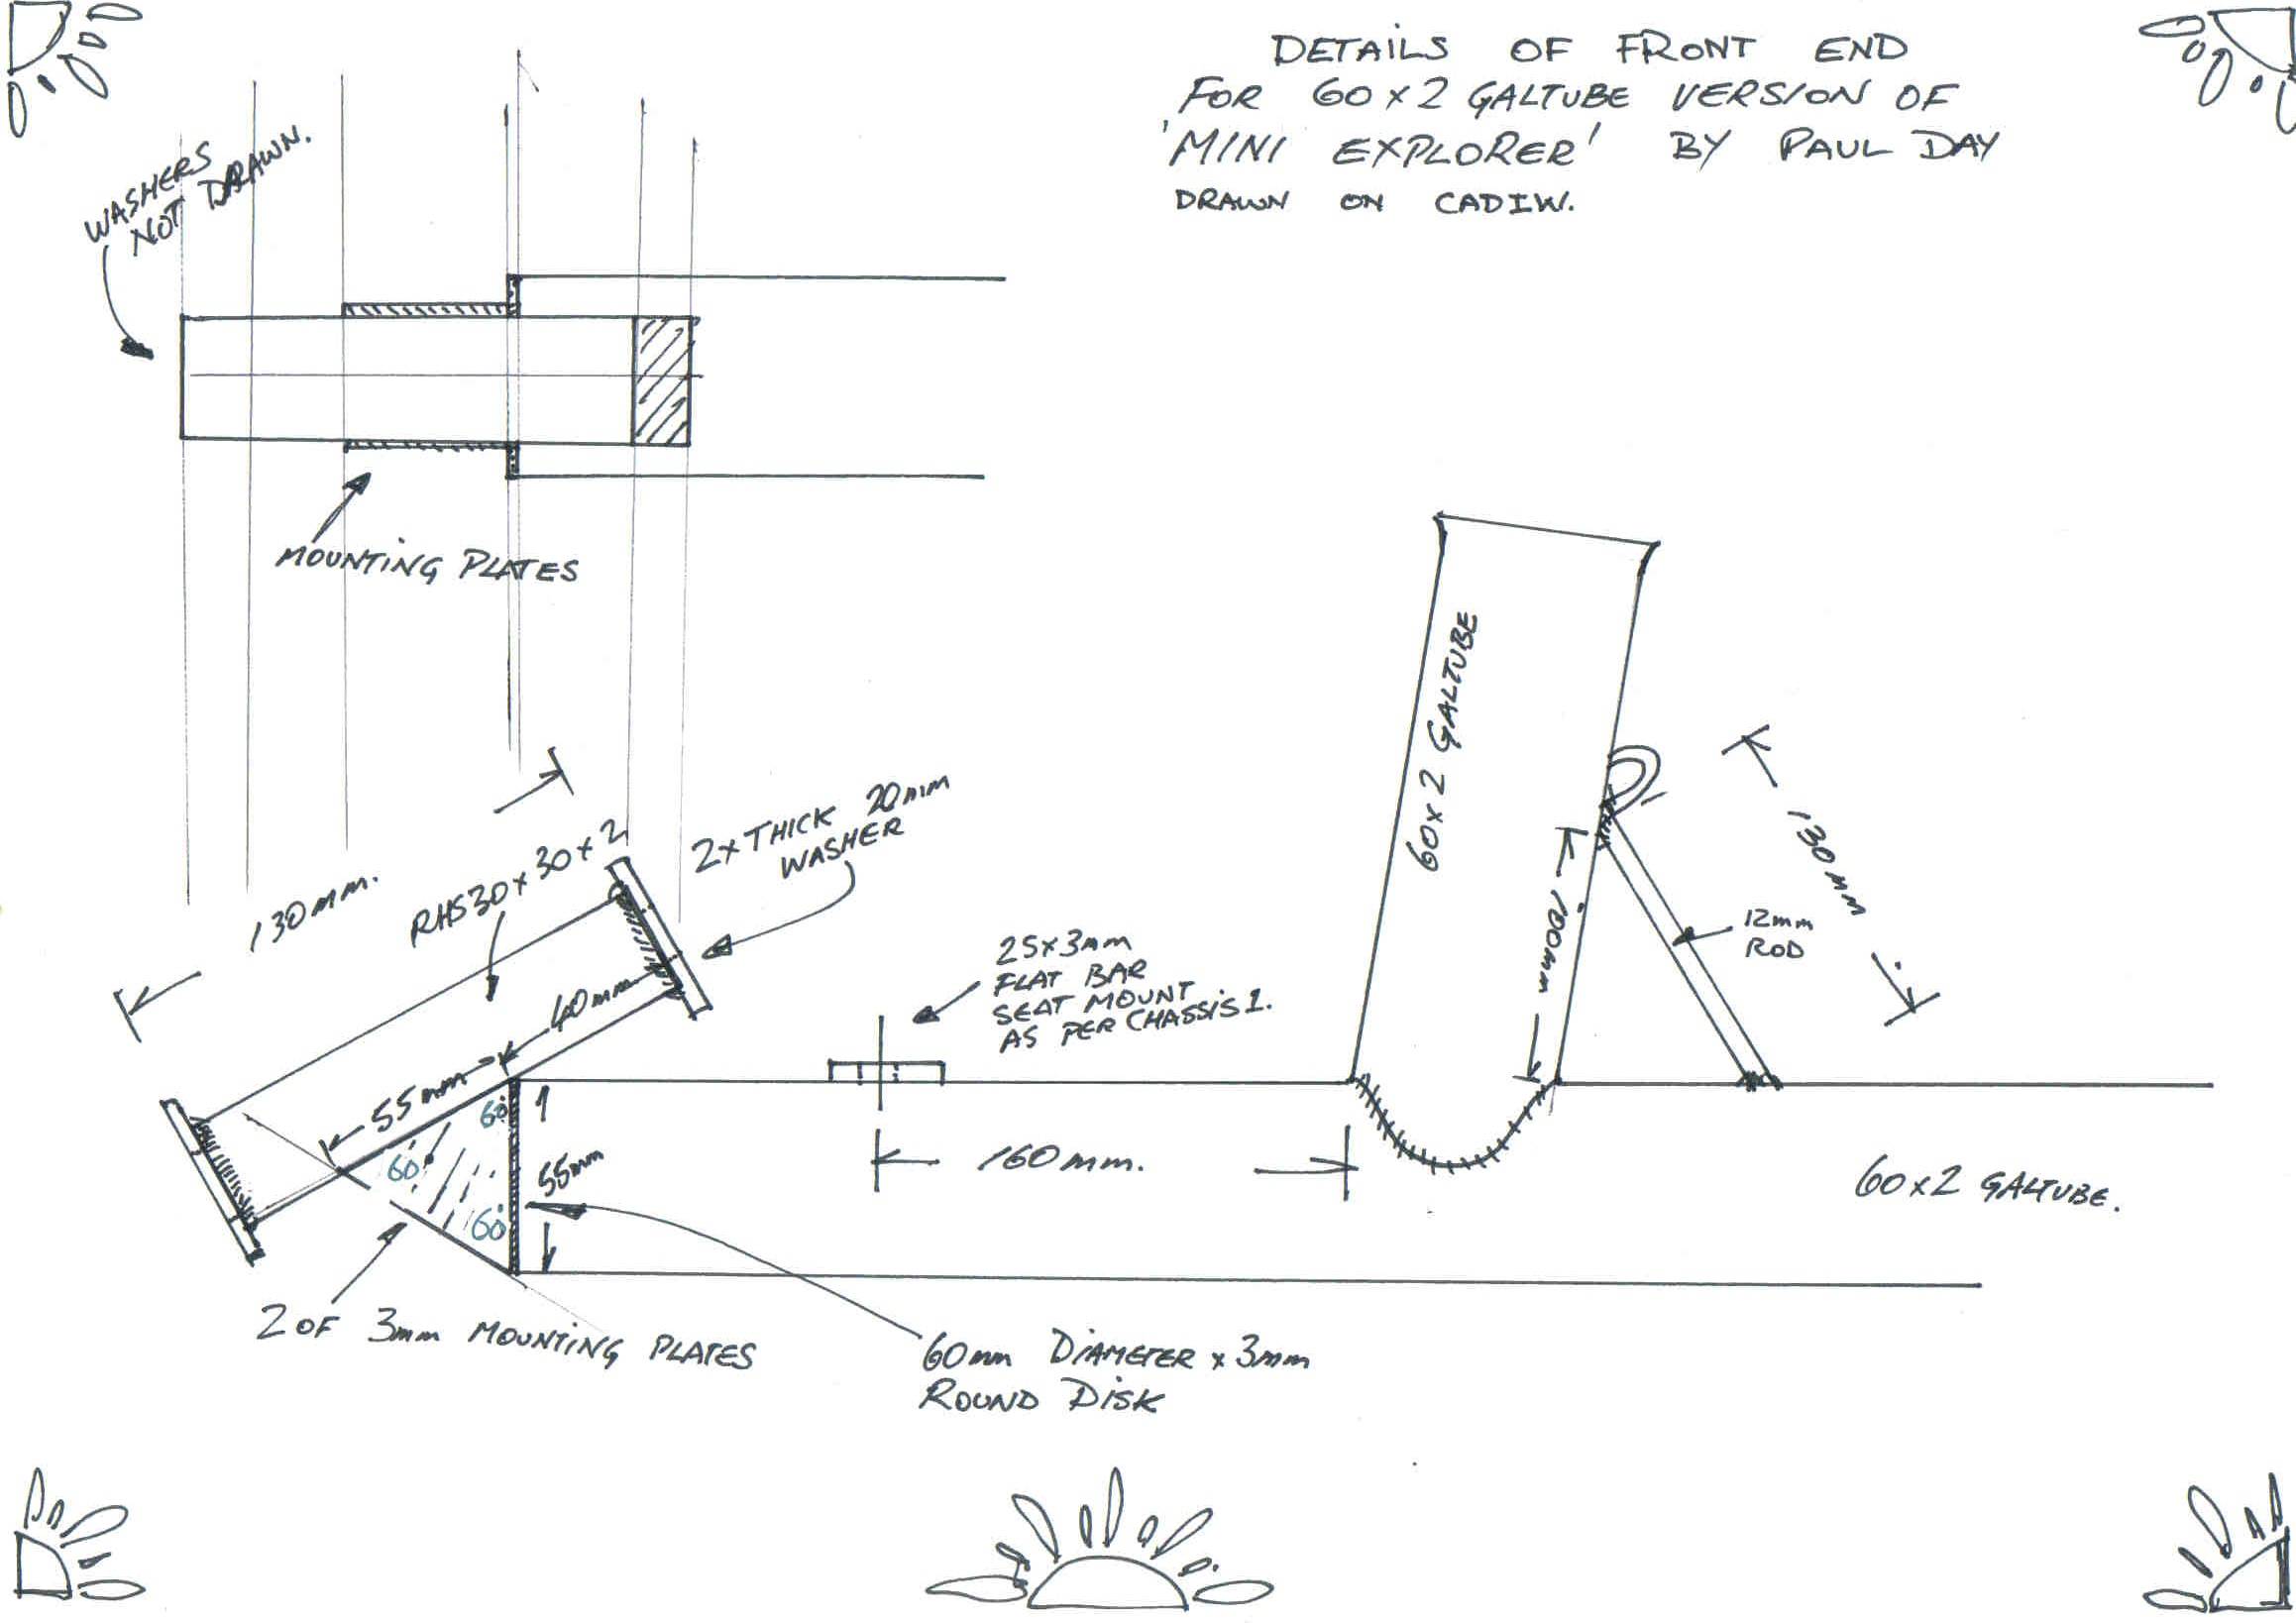 DETAILS OF FRONT END
FOR 60x2 GALTUBE VERSION OF
'MINI EXPLORER' BY PAUL DAY
DRAWN ON CADIW.
WASHERS
NOT DRAWN.
MOUNTING PLATES
130mm.
RHS 30x30x2
2x THICK 20mm
WASHER
40mm
55mm
60°
60°
60°
55mm
25x3mm
FLAT BAR
SEAT MOUNT
AS PER CHASSIS 1.
160mm.
60x2 GALTUBE
100mm
130mm
12mm
ROD
60x2 GALTUBE.
2 OF 3mm MOUNTING PLATES
60mm DIAMETER x 3mm
ROUND DISK